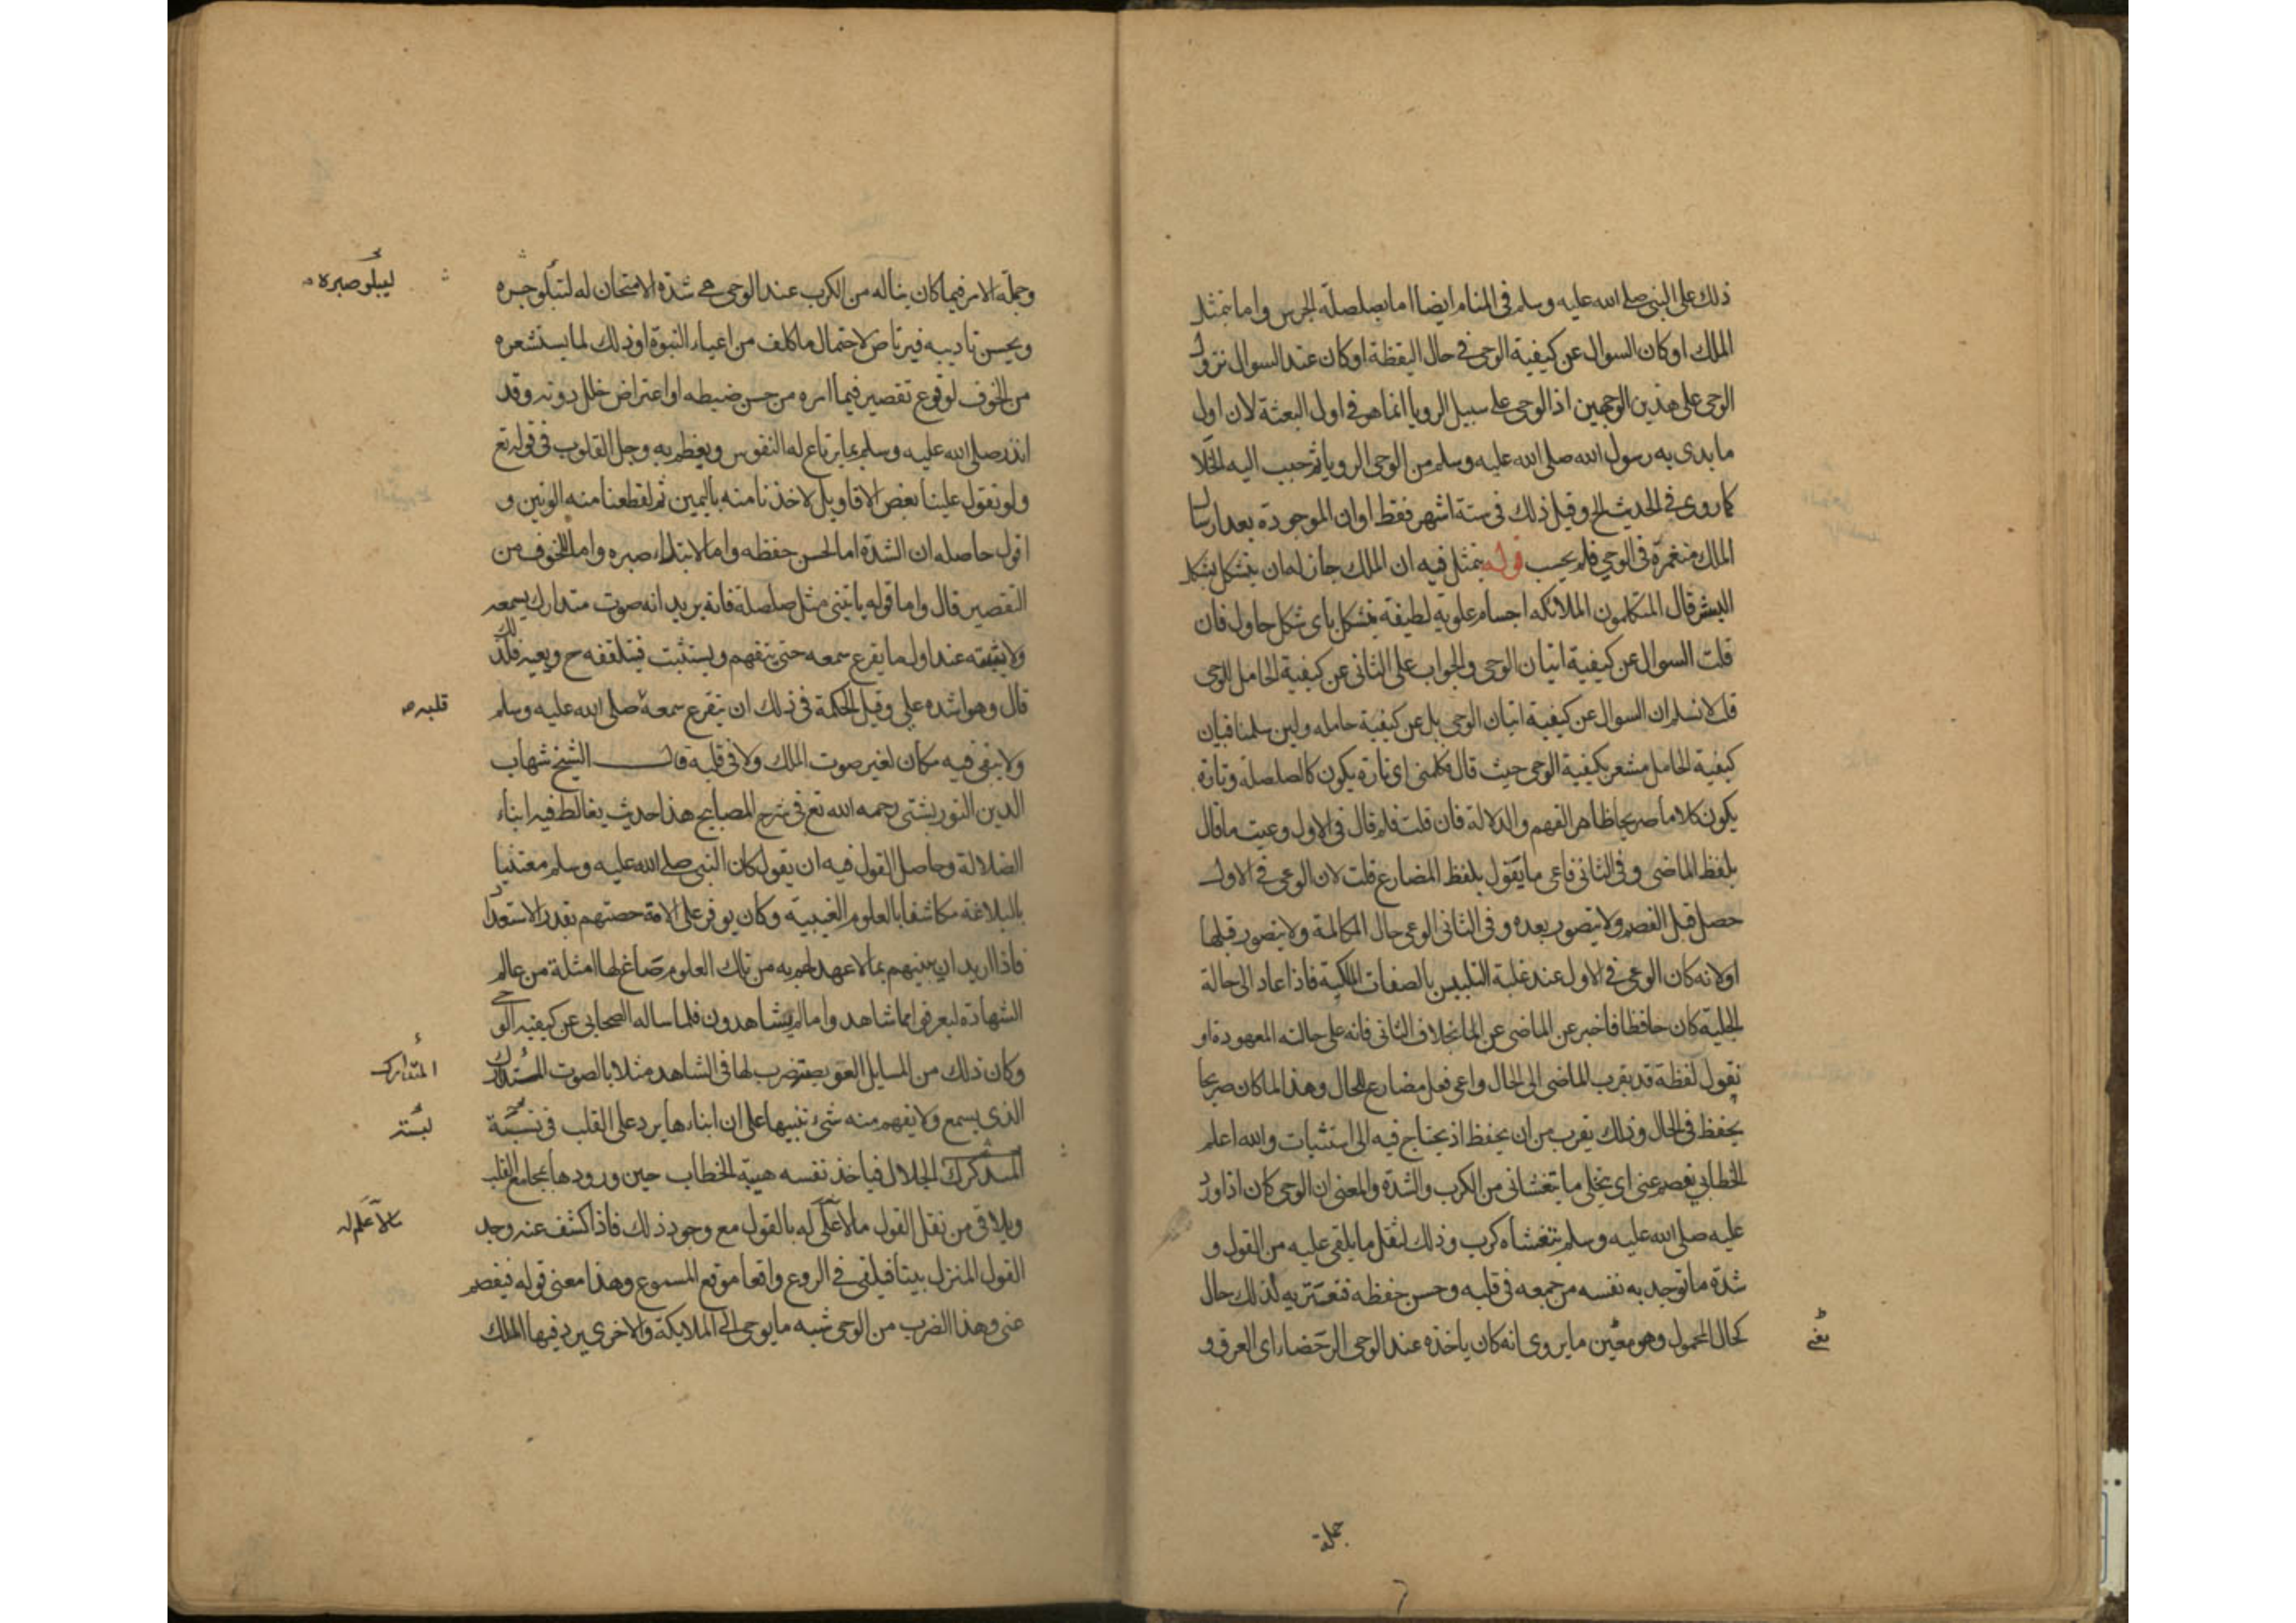 ذلك على النبى صلى الله عليه وسلم فى المنام ايضا اما بصلصلة الجرس واما بتمثل
الملك او كان السوال عن كيفية الوحى فى حال اليقظة او كان عند السوال نزول
الوحى على هذين الوجهين اذ الوحى على سبيل الرويا انما هو فى اول البعثة لان اول
ما بدى به رسول الله صلى الله عليه وسلم من الوحى الرويا ثم حبب اليه الخلا
كما روى فى الحديث الخ وقيل ذلك فى ستة اشهر فقط او ان الموجودة بعد ارسال
الملك منغمرة فى الوحى فلم يحسب قوله يتمثل فيه ان الملك جاز له ان يتشكل بشكل
البشر قال المتكلمون الملائكه اجسام علوية لطيفة يتشكل باى شكل حاول فان
قلت السوال عن كيفية اتيان الوحى والجواب على الثانى عن كيفية الحامل للوحى
قلت لا نسلم ان السوال عن كيفية اتيان الوحى بل عن كيفية حامله ولين سلمنا فبيان
كيفية الحامل مشعر بكيفية الوحى حيث قال فكلمنى اى تارة يكون كالصلصلة وتارة
يكون كلاما صريحا ظاهر الفهم والدلالة فان قلت فلم قال فى الاول وعيت ما قال
بلفظ الماضى وفى الثانى فاعى ما يقول بلفظ المضارع قلت لان الوعى فى الاول
حصل قبل الفصم ولا يتصور بعده وفى الثانى الوعى حال المكالمة ولا يتصور قبلها
او لانه كان الوعى فى الاول عند غلبة التلبس بالصفات الملكية فاذا عاد الى حالة
الجبلية كان حافظا فاخبر عن الماضى بخلاف الثانى فانه على حالته المعهودة او
نقول لفظة قد يقرب الماضى الى الحال واعى فعل مضارع للحال وهذا لما كان صريحا
يحفظ فى الحال وذلك يقرب من ان يحفظ اذ يحتاج فيه الى استثبات والله اعلم
الخطابى يفصم عنى اى يجلى ما يتغشانى من الكرب والشدة والمعنى ان الوحى كان اذا ورد
عليه صلى الله عليه وسلم يتغشاه كرب وذلك لثقل ما يلقى عليه من القول و
شدة ما توجد به نفسه من جمعه فى قلبه وحسن حفظه فتعتريه لذلك حال
كحال المحموم وهو معنى ما يروى انه كان ياخذه عند الوحى الرحضاء اى العرق و
جملة
وجملة الامر فيما كان يناله من الكرب عند الوحى هى شدة الامتحان له ليبلو صبره
ليبلو صبره
ويحسن تاديبه فيرتاض لاحتمال ما كلف من اعباء النبوة او ذلك لما يستشعره
من الخوف لوقوع تقصير فيما امره من حسن ضبطه او اعتراض خلل دونه وقد
انذر صلى الله عليه وسلم بما يرتاع له النفوس ويعظم به وجل القلوب فى قوله تع
ولو تقول علينا بعض الاقاويل لاخذنا منه باليمين ثم لقطعنا منه الوتين و
اقول حاصله ان الشدة اما لحسن حفظه واما لابتلاء صبره واما للخوف من
التقصير قال واما قوله ياتينى مثل صلصلة فانه يريد انه صوت متدارك يسمعه
ولا يثبته عند اول ما يقرع سمعه حتى يتفهم ويستثبت فيتلقفه ح ويعيه فلذلك
قال وهو اشده على وقيل الحكمة فى ذلك ان يتفرغ سمعه صلى الله عليه وسلم
قلبه
ولا يبقى فيه مكان لغير صوت الملك ولا فى قلبه قال الشيخ شهاب
الدين التوربشتى رحمه الله تع فى شرح المصابيح هذا حديث يغالط فيه ابناء
الضلالة وحاصل القول فيه ان يقول كان النبى صلى الله عليه وسلم معتنيا
بالبلاغة مكاشفا بالعلوم الغيبية وكان يوفر على الامة حصتهم بقدر الاستعداد
فاذا اريد ان ينبيهم بما لا عهد لهم به من تلك العلوم صاغ لها امثلة من عالم
الشهادة ليعرفوا مما شاهدوا ما لم يشاهدون فلما ساله الصحابى عن كيفية الوحى
وكان ذلك من المسايل العويصة ضرب لها فى الشاهد مثلا بالصوت المتدارك
المتدارك
الذى يسمع ولا يفهم منه شىء تنبيها على ان ابناءها يرد على القلب فى لبسة
لبسة
الجلال فياخذ نفسه هيبة الخطاب حين ورودها بمجامع القلب
ويلاقى من ثقل القول ما لا علم له بالقول مع وجود ذلك فاذا كشف عنه وجد
مالا علم له
القول المنزل بينا فيلقى فى الروع واقعا موقع المسموع وهذا معنى قوله فيفصم
عنى وهذا الضرب من الوحى شبيه ما يوحى الى الملايكة والاخرى يرد فيها الملك